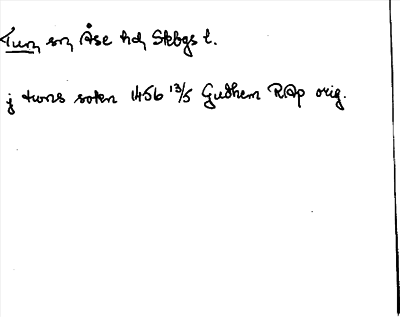 Tun, sn, Åse hd, Skbgs l.
j twns sokn 1456 13/5 Gudhem RAp orig.